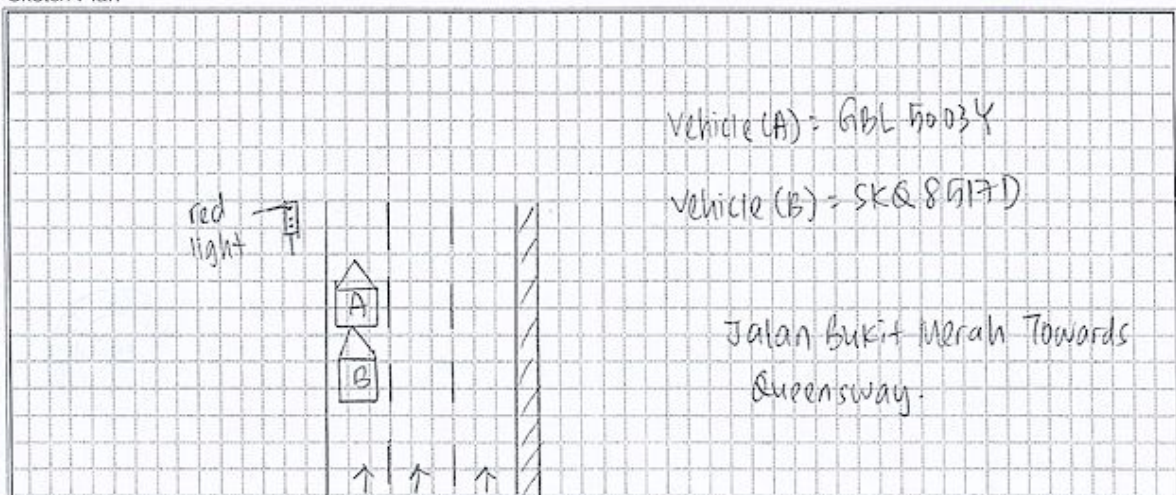 Vehicle (A) = GBL 5003Y
Vehicle (B) = SKQ 8517D
red
light
A
B
Jalan Bukit Merah Towards
Queensway.